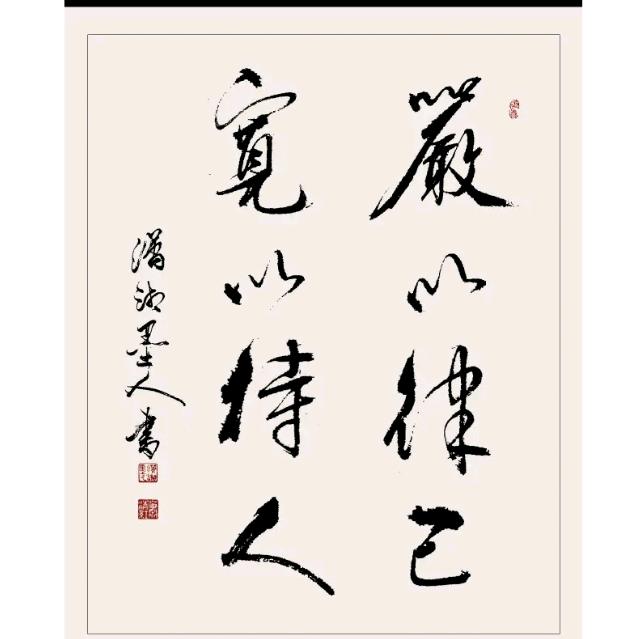 嚴以律己
寬以待人
瀟湘墨人書